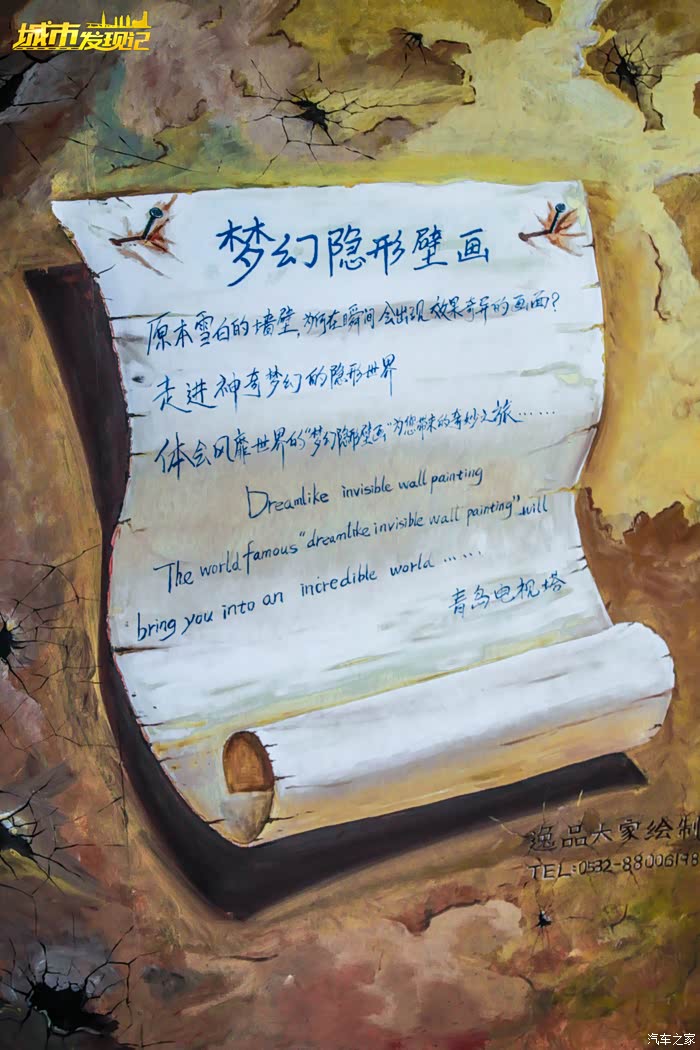 城市发现记
梦幻隐形壁画
原本雪白的墙壁,为何在瞬间会出现效果奇异的画面?
走进神奇梦幻的隐形世界
体会风靡世界的“梦幻隐形壁画”为您带来的奇妙之旅……
Dreamlike invisible wall painting
The world famous“dreamlike invisible wall painting”will
bring you into an incredible world ……
青岛电视塔
逸品大家绘制
TEL:0532-88006198
汽车之家